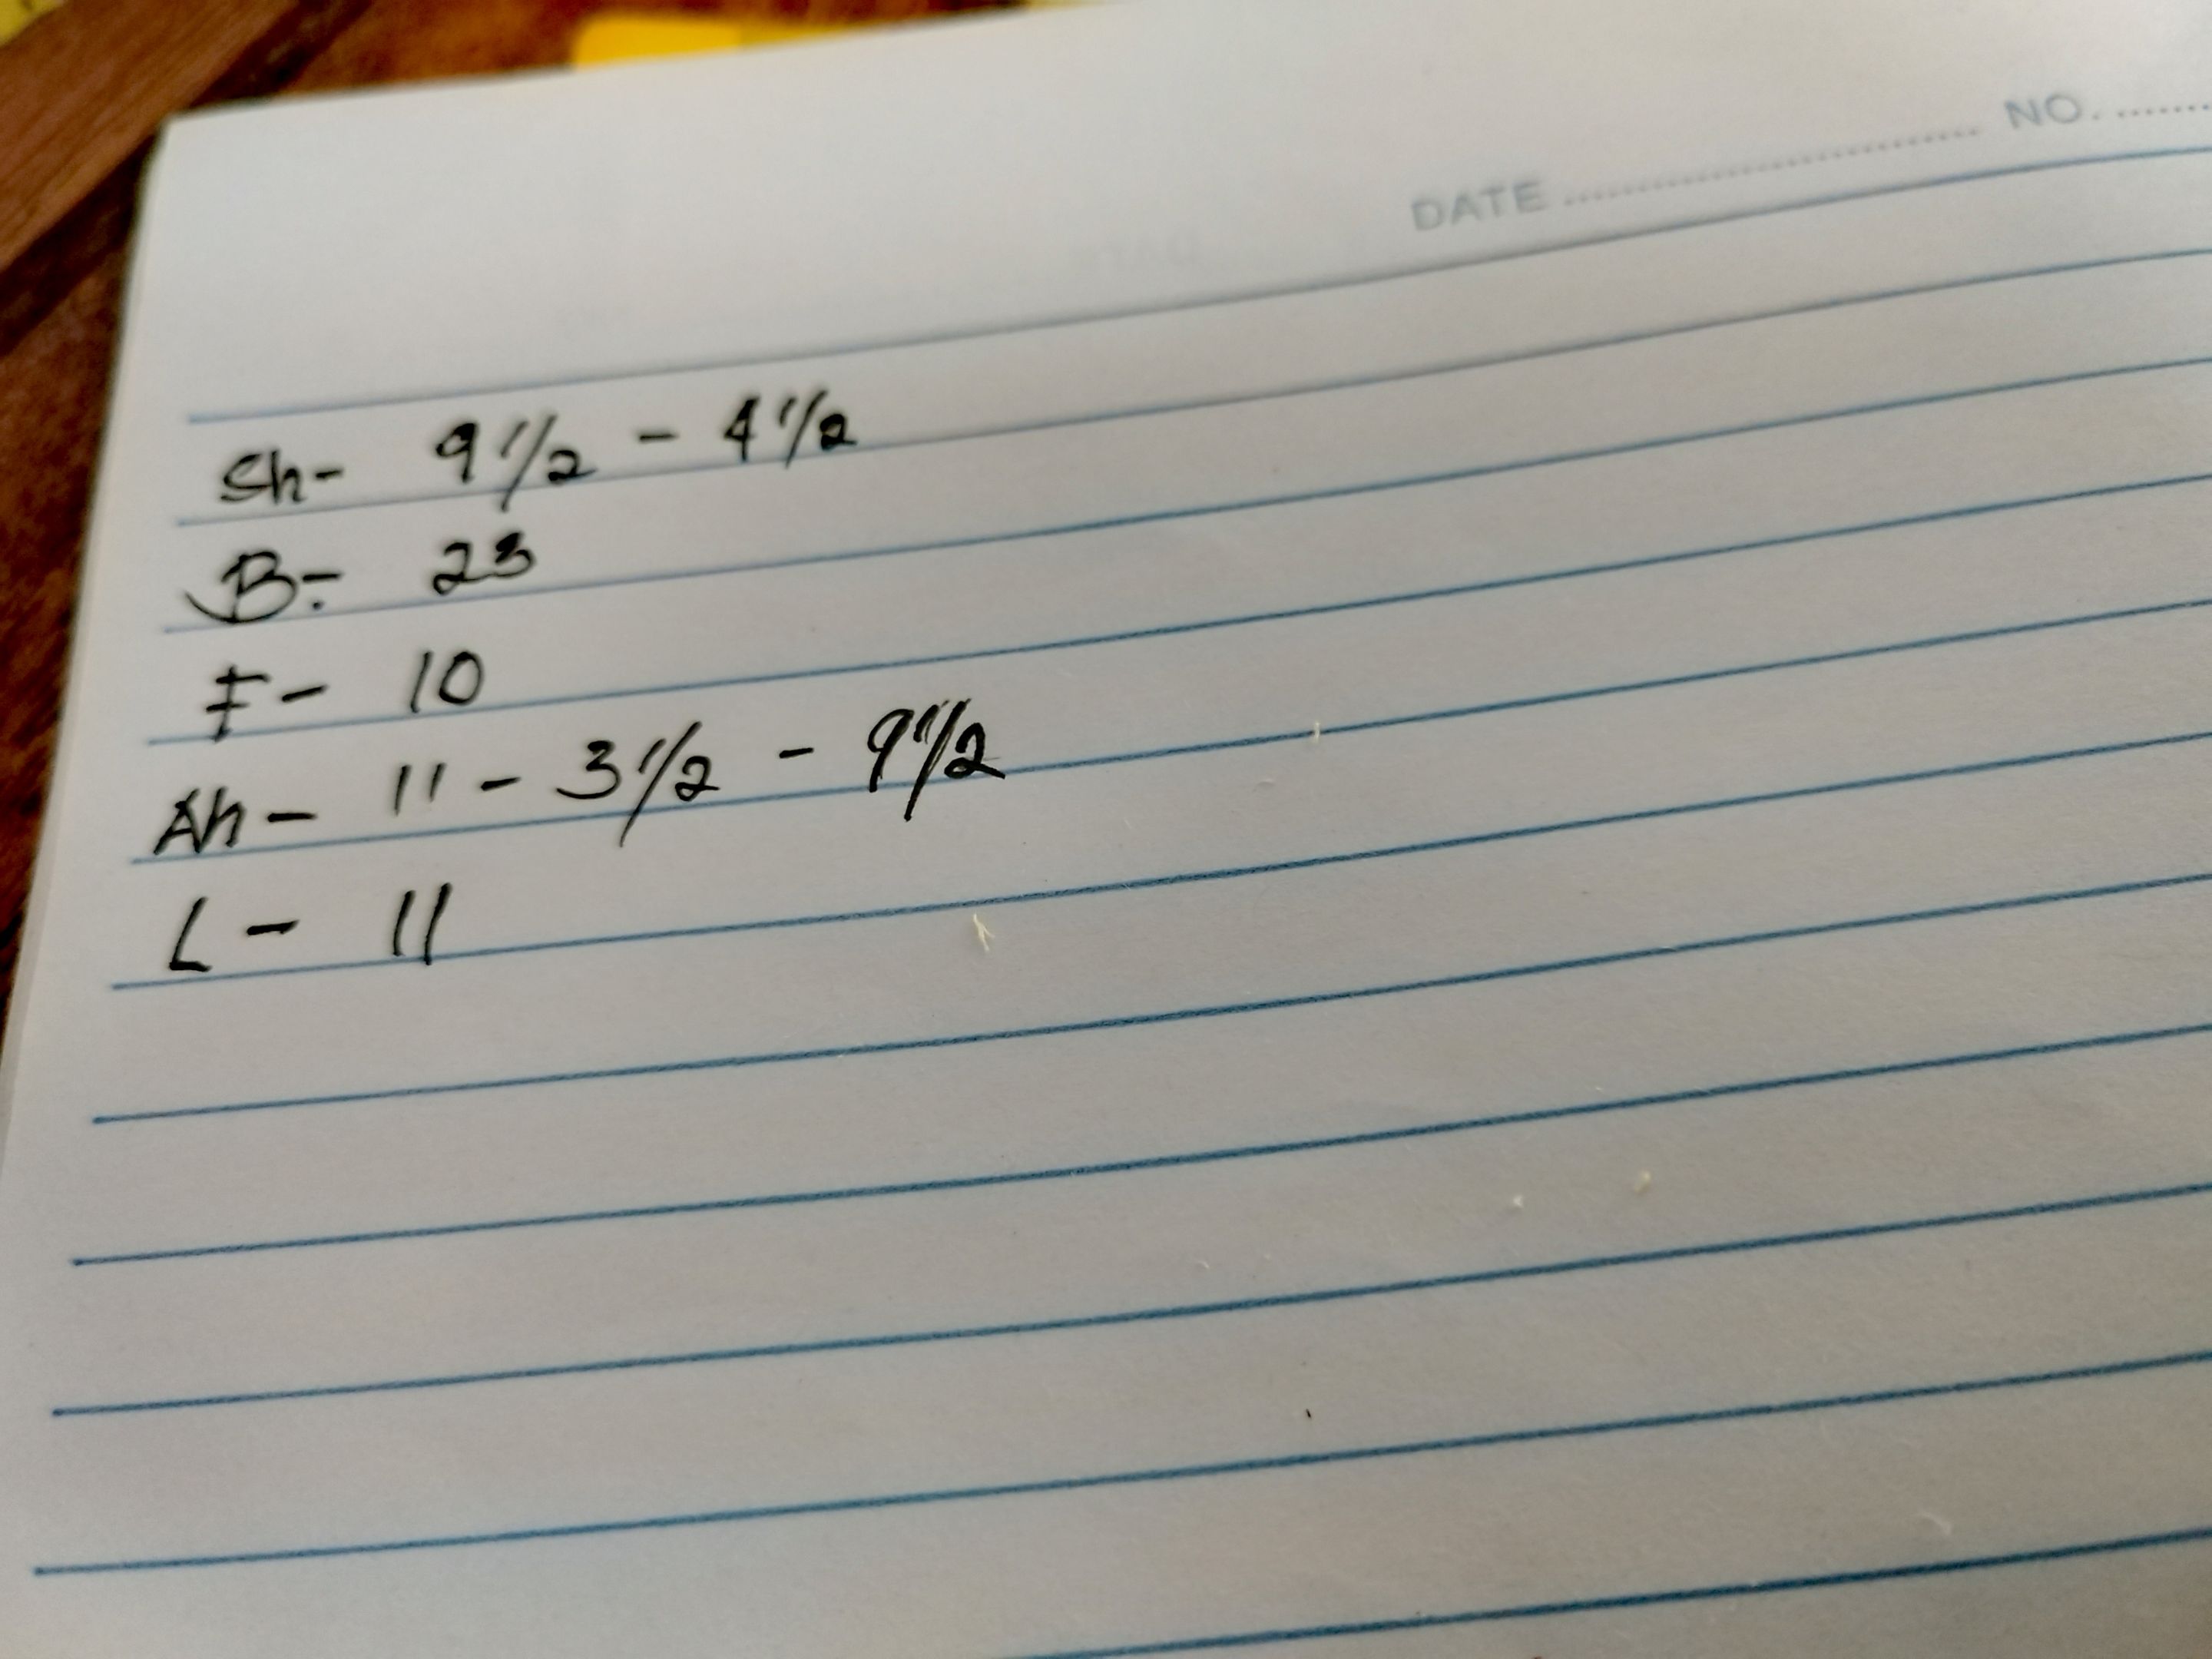 DATE .............................. NO. ........
Sh- 9 1/2 - 4 1/2
B:- 23
F- 10
Ah- 11 - 3 1/2 - 9 1/2
L- 11